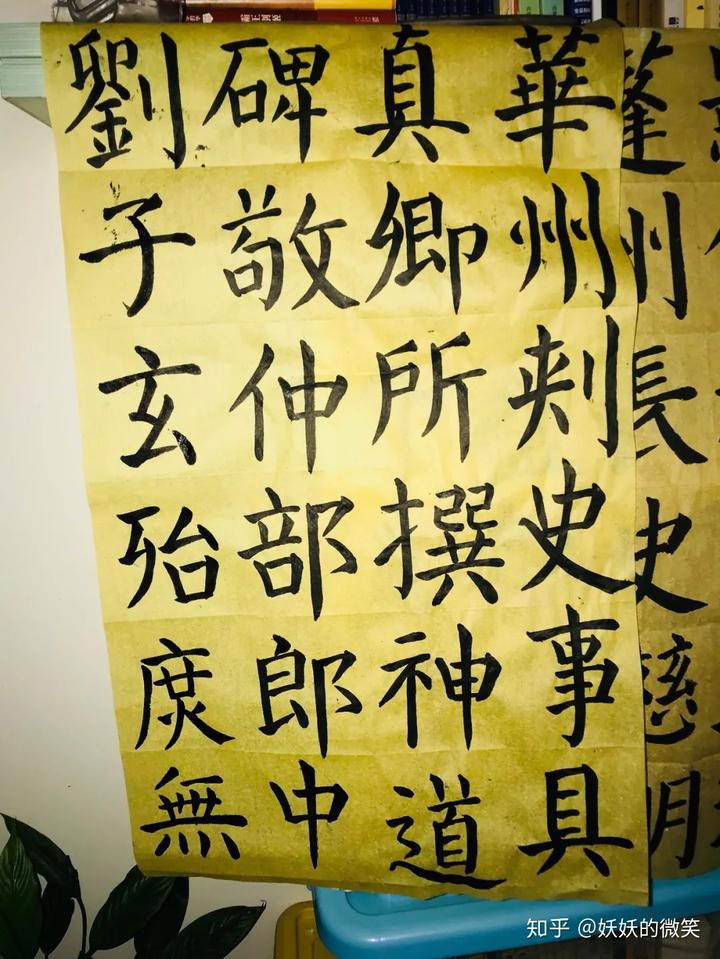 蓬州長史慈明
華州刾史事具
真卿所撰神道
碑敬仲部郎中
劉子玄殆庶無
知乎 @妖妖的微笑